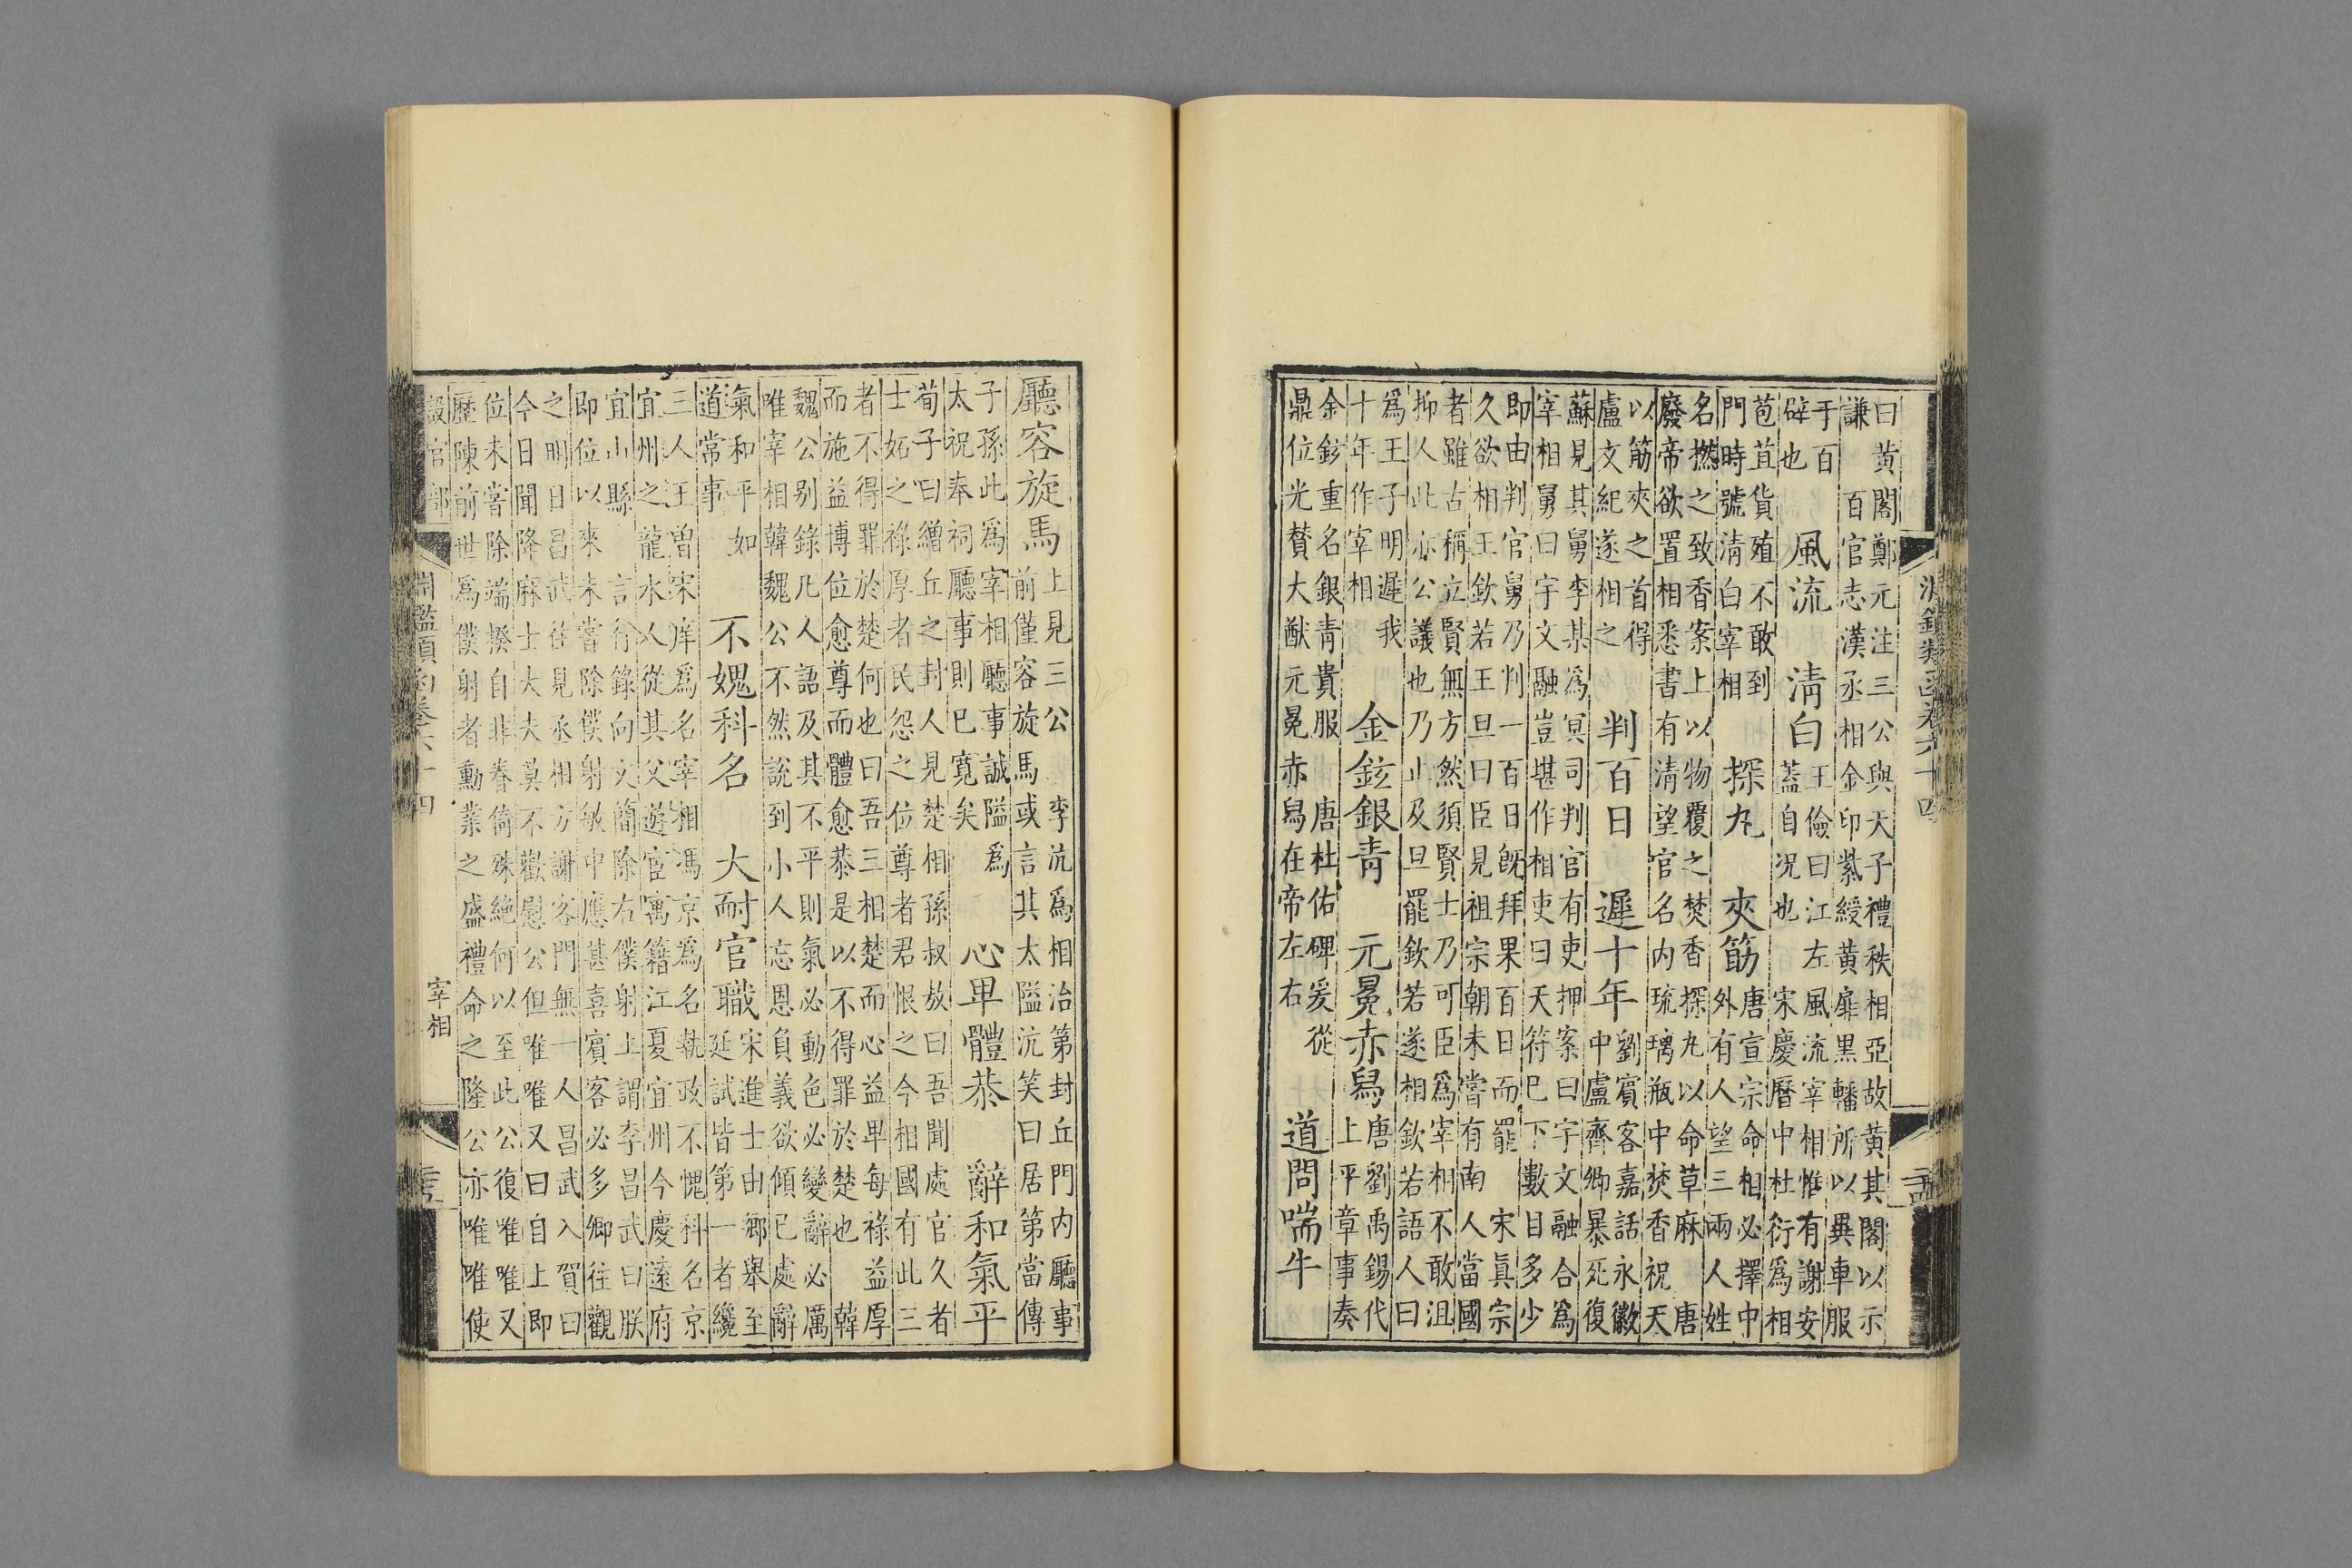 淵鑑類函卷六十四
曰黄閣鄭元注三公與天子禮秩相亞故黄其閣以示
謙 百官志漢丞相金印紫綬黄扉黒轓所以異車服
于百
辟也
風流 清白
王儉曰江左風流宰相惟有謝安
蓋自况也 宋慶曆中杜衍為相
苞苴貨殖不敢到
門時號清白宰相
探丸 夾筯
唐宣宗命相必擇中
外有人望三兩人姓
名撚之致香案上以物覆之焚香探丸以命草麻 唐
廢帝欲置相悉書有清望官名内琉璃瓶中焚香祝天
以筯夾之首得
盧文紀遂相之
判百日 遲十年
劉賓客嘉話永徽
中盧齊卿暴死復
蘇見其舅李某為冥司判官有吏押案曰宇文融合為
宰相舅曰宇文融豈堪作相吏曰天符巳下數目多少
即由判官舅乃判一百日既拜果百日而罷 宋眞宗
久欲相王欽若王旦曰臣見祖宗朝未嘗有南人當國
者雖古稱立賢無方然須賢士乃可臣為宰相不敢沮
抑人此亦公議也乃止及旦罷欽若遂相欽若語人曰
為王子明遲我
十年作宰相
金鉉銀青 元冕赤舄
唐劉禹錫代
上平章事奏
金鉉重名銀青貴服 唐杜佑碑爰從
鼎位光賛大猷元冕赤舄在帝左右
道問喘牛
廳容旋馬
上見三公 李沆為相治第封丘門内廳事
前僅容旋馬或言其太隘沆笑曰居第當傳
子孫此為宰相廳事誠隘為
太祝奉祠廳事則巳寬矣
心卑體恭 辭和氣平
荀子曰繒丘之封人見楚相孫叔敖曰吾聞處官久者
士妬之祿厚者民怨之位尊者君恨之今相國有此三
者不得罪於楚何也曰吾三相楚而心益卑每祿益厚
而施益博位愈尊而體愈恭是以不得罪於楚也 韓
魏公别錄凡人語及其不平則氣必動色必變辭必厲
唯宰相韓魏公不然說到小人忘恩負義欲傾已處辭
氣和平如
道常事
不媿科名 大耐官職
宋進士由鄉舉至
延試皆第一者纔
三人王曾宋庠為名宰相馮京為名執政不愧科名京
宜州之龍水人從其父遊宦寓籍江夏宜州今慶遠府
宜山縣 言行錄向文簡除右僕射上謂李昌武曰朕
即位以來未嘗除僕射敏中應甚喜賓客必多卿往觀
之明日昌武往見丞相方謝客門無一人昌武入賀曰
今日聞降麻士大夫莫不歡慰公但唯唯又曰自上即
位未嘗除端揆自非眷倚殊絶何以至此公復唯唯又
歷陳前世為僕射者勳業之盛禮命之隆公亦唯唯使
設官部 淵鑑類函卷六十四 宰相